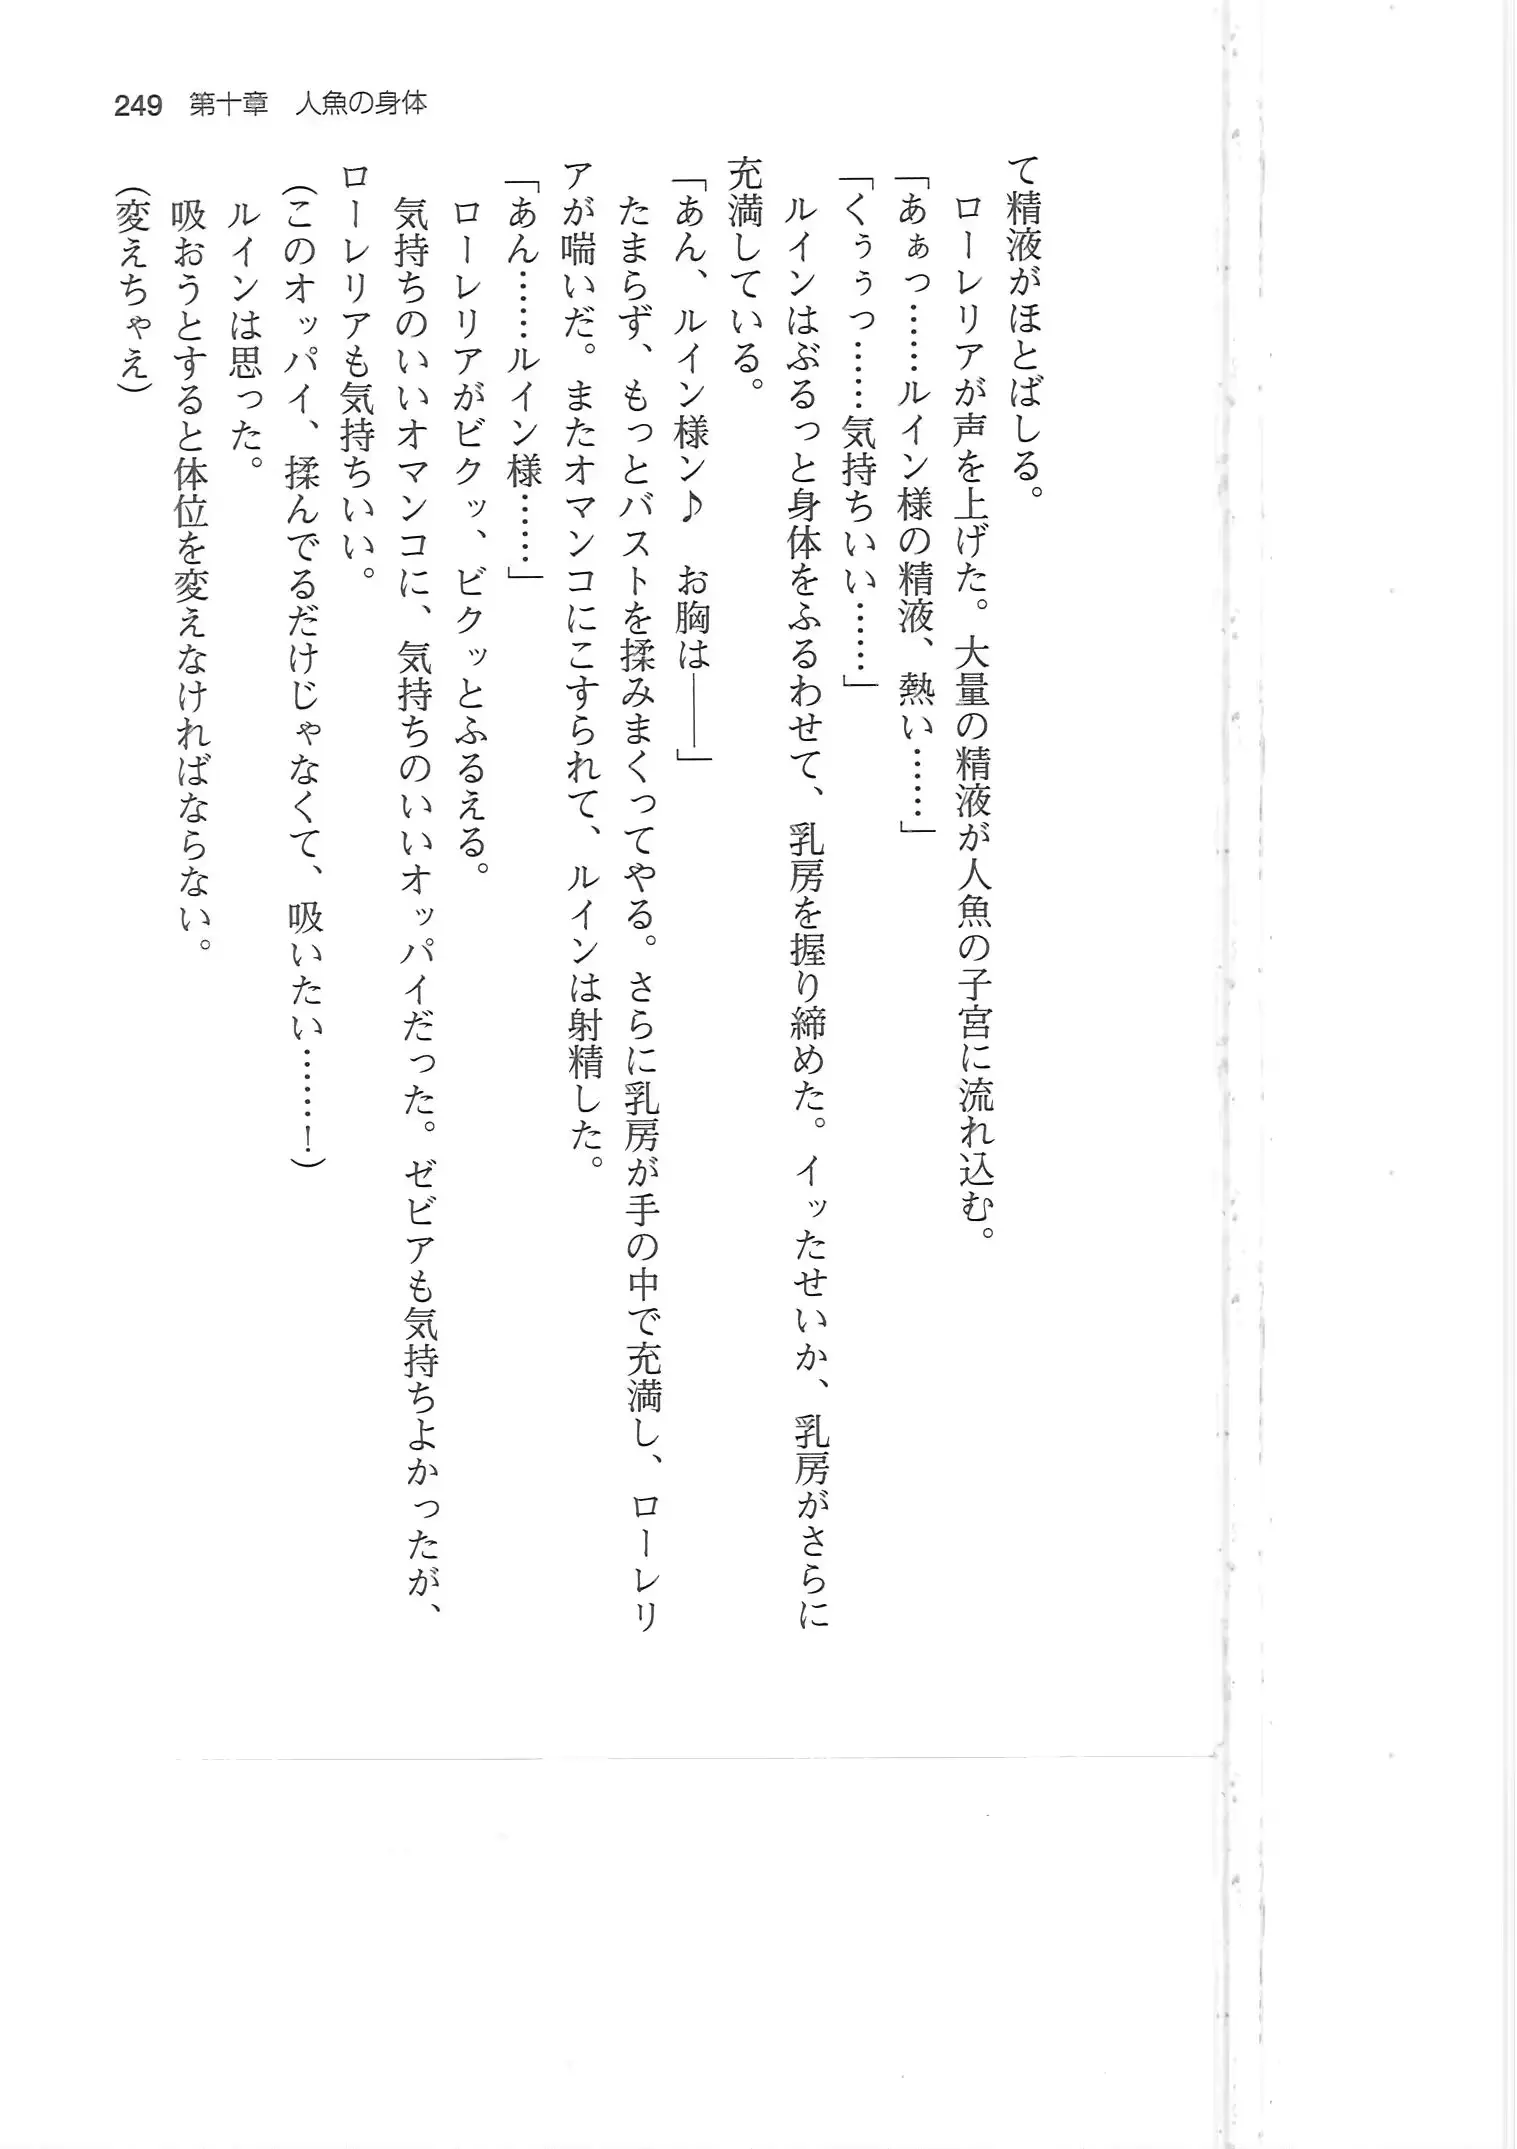 249 第十章 人魚の身体
て精液がほとばしる。
ローレリアが声を上げた。大量の精液が人魚の子宮に流れ込む。
「あぁっ……ルイン様の精液、熱い……」
「くぅぅっ……気持ちいい……」
ルインはぶるっと身体をふるわせて、乳房を握り締めた。イッたせいか、乳房がさらに
充満している。
「あん、ルイン様ン♪ お胸は――」
たまらず、もっとバストを揉みまくってやる。さらに乳房が手の中で充満し、ローレリ
アが喘いだ。またオマンコにこすられて、ルインは射精した。
「あん……ルイン様……」
ローレリアがビクッ、ビクッとふるえる。
気持ちのいいオマンコに、気持ちのいいオッパイだった。ゼビアも気持ちよかったが、
ローレリアも気持ちいい。
(このオッパイ、揉んでるだけじゃなくて、吸いたい……!)
ルインは思った。
吸おうとすると体位を変えなければならない。
(変えちゃえ)